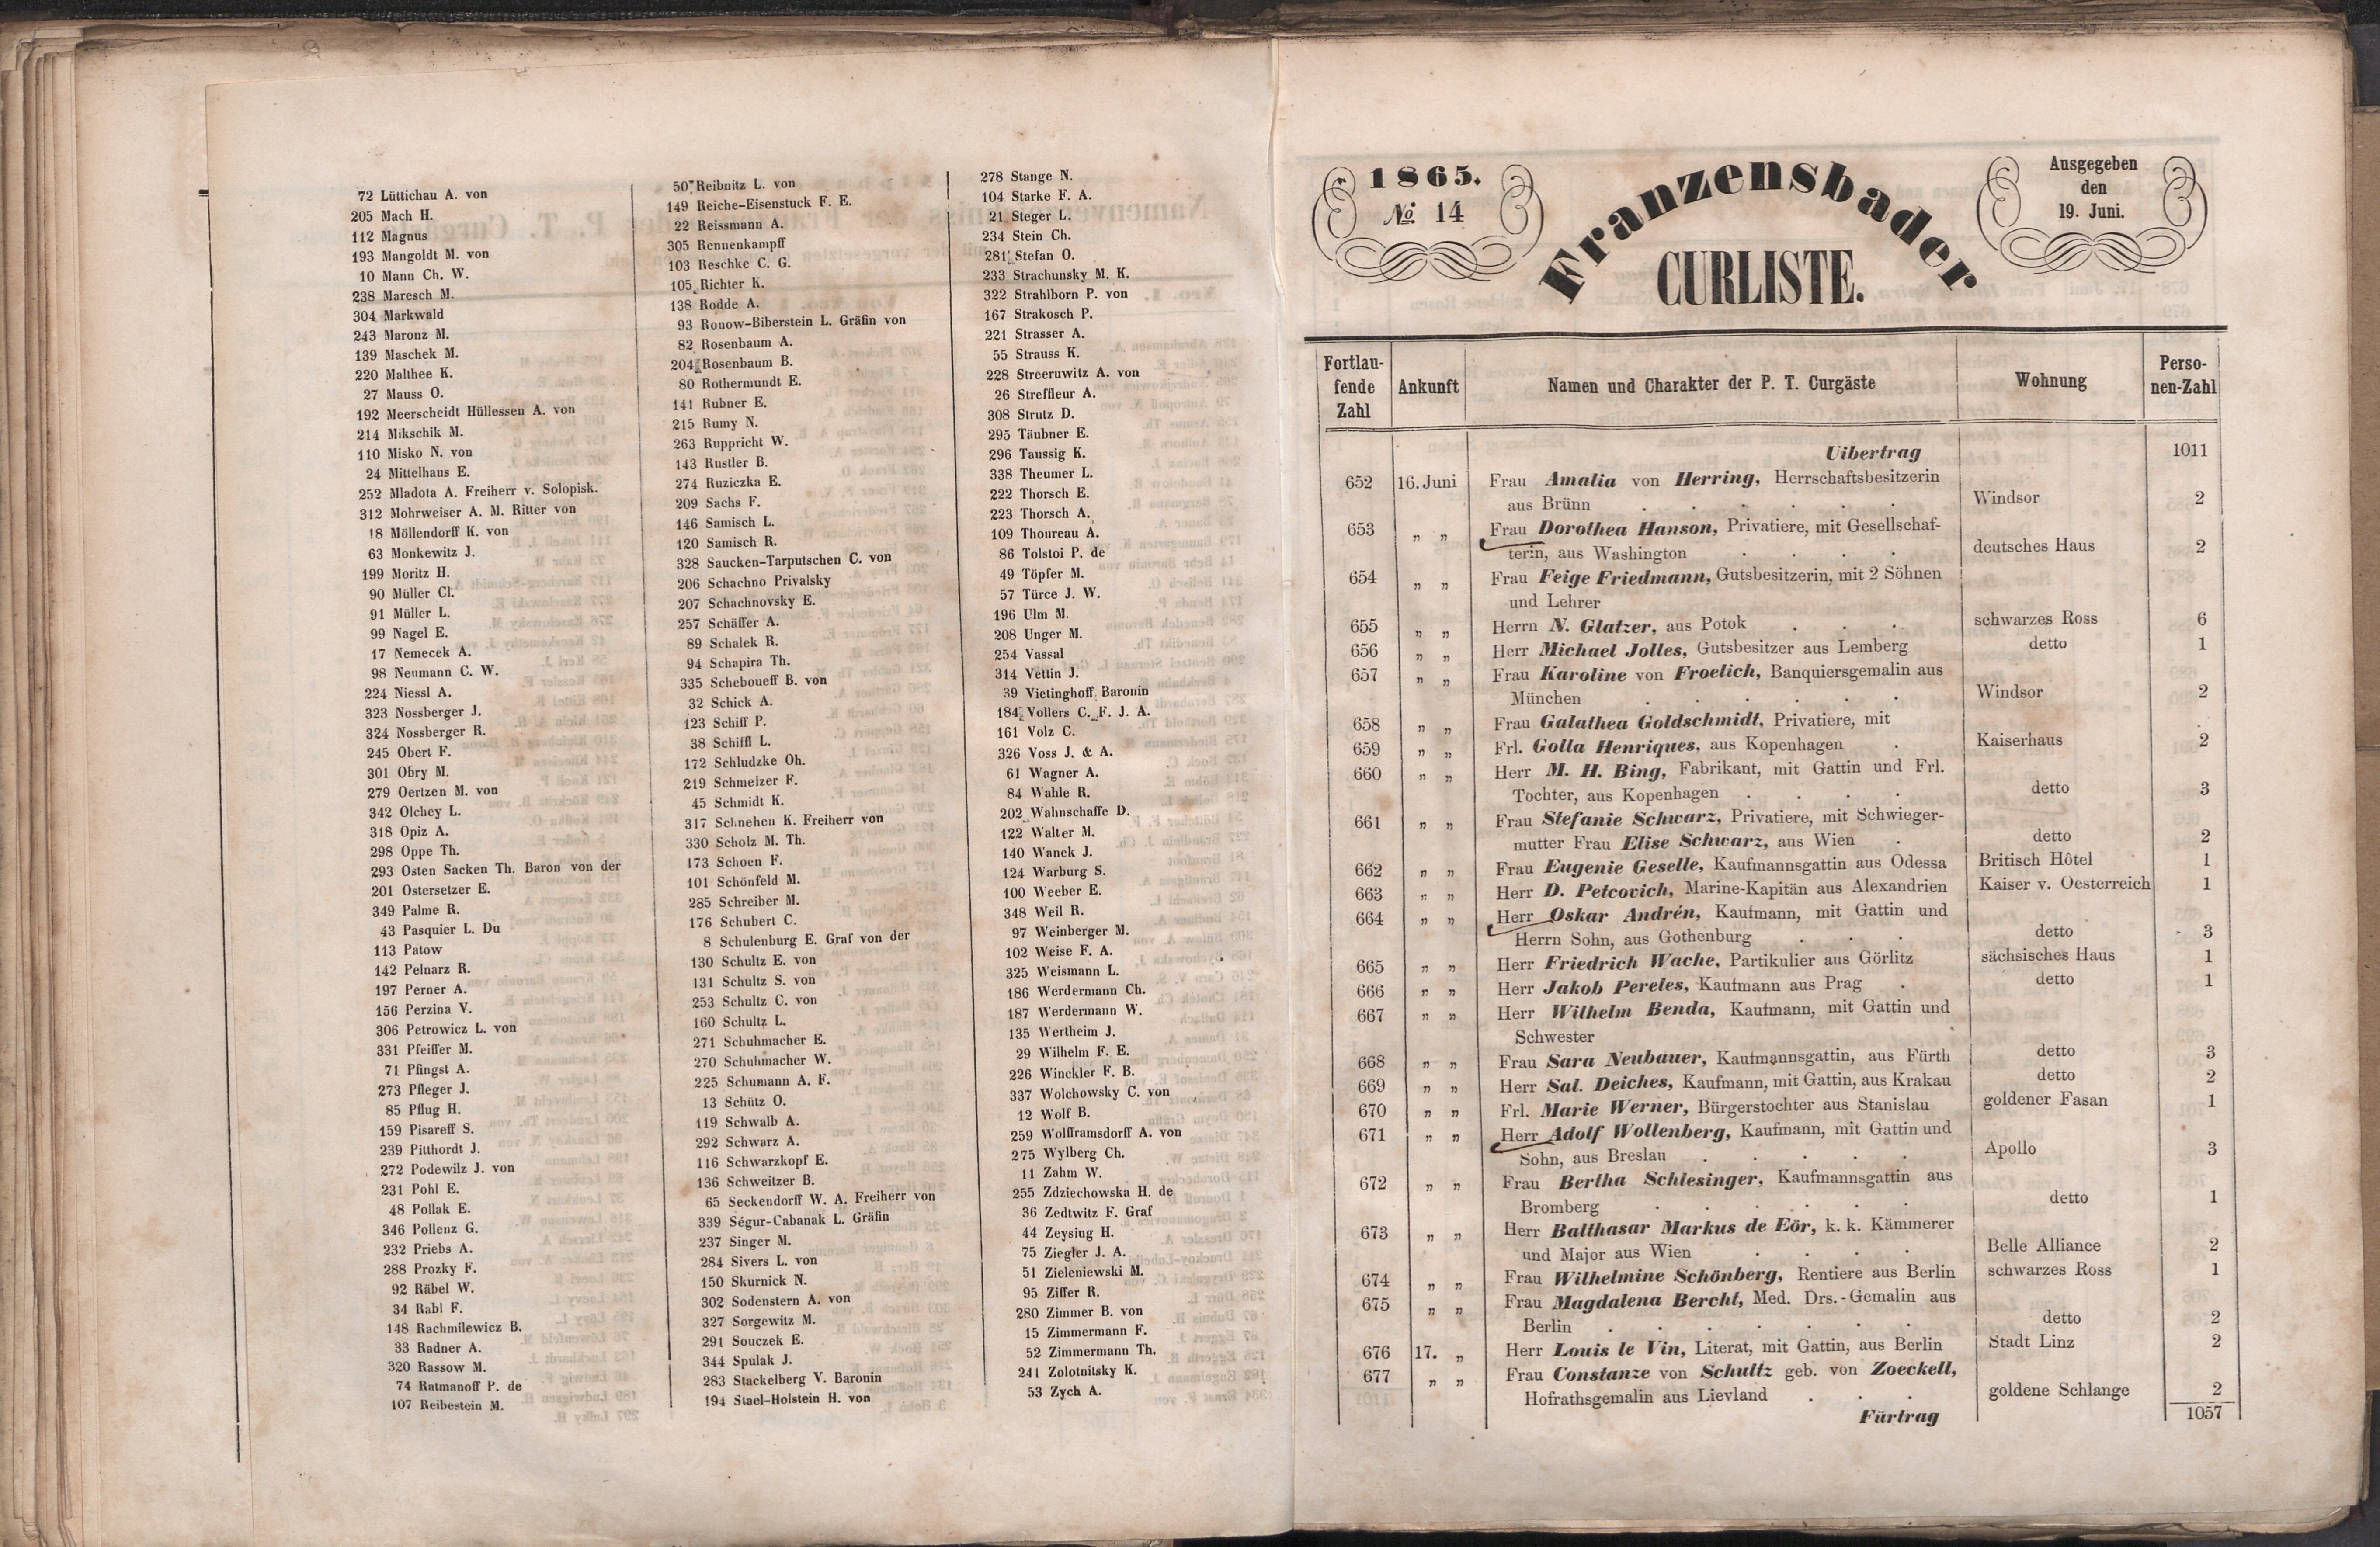 72 Lüttichau A. von
205 Mach H.
112 Magnus
193 Mangoldt M. von
10 Mann Ch. W.
238 Maresch M.
304 Markwald
243 Maronz M.
139 Maschek M.
220 Malthee K.
27 Mauss O.
192 Meerscheidt Hüllessen A. von
214 Mikschik M.
110 Misko N. von
24 Mittelhaus E.
252 Mladota A. Freiherr v. Solopisk.
312 Mohrweiser A. M. Ritter von
18 Möllendorff K. von
63 Monkewitz J.
199 Moritz H.
90 Müller Cl.
91 Müller L.
99 Nagel E.
17 Nemecek A.
98 Neumann C. W.
224 Niessl A.
323 Nossberger J.
324 Nossberger R.
245 Obert F.
301 Obry M.
279 Oertzen M. von
342 Olchey L.
318 Opiz A.
298 Oppe Th.
293 Osten Sacken Th. Baron von der
201 Ostersetzer E.
349 Palme R.
43 Pasquier L. Du
113 Patow
142 Pelnarz R.
197 Perner A.
156 Perzina V.
306 Petrowicz L. von
331 Pfeiffer M.
71 Pfingst A.
273 Pfleger J.
85 Pflug H.
159 Pisareff S.
239 Pitthordt J.
272 Podewilz J. von
231 Pohl E.
48 Pollak E.
346 Pollenz G.
232 Priebs A.
288 Prozky F.
92 Räbel W.
34 Rabl F.
148 Rachmilewicz B.
33 Radner A.
320 Rassow M.
74 Ratmanoff P. de
107 Reibestein M.
50 Reibnitz L. von
149 Reiche-Eisenstuck F. E.
22 Reissmann A.
305 Rennenkampff
103 Reschke C. G.
105 Richter K.
138 Rodde A.
93 Ronow-Biberstein L. Gräfin von
82 Rosenbaum A.
204 Rosenbaum B.
80 Rothermundt E.
141 Rubner E.
215 Rumy N.
263 Ruppricht W.
143 Rustler B.
274 Ruziczka E.
209 Sachs F.
146 Samisch L.
120 Samisch R.
328 Saucken-Tarputschen C. von
206 Schachno Privalsky
207 Schachnovsky E.
257 Schäffer A.
89 Schalek R.
94 Schapira Th.
335 Scheboueff B. von
32 Schick A.
123 Schiff P.
38 Schiffl L.
172 Schludzke Oh.
219 Schmelzer F.
45 Schmidt K.
317 Schnehen K. Freiherr von
330 Scholz M. Th.
173 Schoen F.
101 Schönfeld M.
285 Schreiber M.
176 Schubert C.
8 Schulenburg E. Graf von der
130 Schultz E. von
131 Schultz S. von
253 Schultz C. von
160 Schultz L.
271 Schuhmacher E.
270 Schuhmacher W.
225 Schumann A. F.
13 Schütz O.
119 Schwalb A.
292 Schwarz A.
116 Schwarzkopf E.
136 Schweitzer B.
65 Seckendorff W. A. Freiherr von
339 Ségur-Cabanak L. Gräfin
237 Singer M.
284 Sivers L. von
150 Skurnick N.
302 Sodenstern A. von
327 Sorgewitz M.
291 Souczek E.
344 Spulak J.
283 Stackelberg V. Baronin
194 Stael-Holstein H. von
278 Stange N.
104 Starke F. A.
21 Steger L.
234 Stein Ch.
281 Stefan O.
233 Strachunsky M. K.
322 Strahlborn P. von
167 Strakosch P.
221 Strasser A.
55 Strauss K.
228 Streeruwitz A. von
26 Streffleur A.
308 Strutz D.
295 Täubner E.
296 Taussig K.
338 Theumer L.
222 Thorsch E.
223 Thorsch A.
109 Thoureau A.
86 Tolstoi P. de
49 Töpfer M.
57 Türce J. W.
196 Ulm M.
208 Unger M.
254 Vassal
314 Vettin J.
39 Vietinghoff Baronin
184 Vollers C. F. J. A.
161 Volz C.
326 Voss J. & A.
61 Wagner A.
84 Wahle R.
202 Wahnschaffe D.
122 Walter M.
140 Wanek J.
124 Warburg S.
100 Weeber E.
348 Weil R.
97 Weinberger M.
102 Weise F. A.
325 Weismann L.
186 Werdermann Ch.
187 Werdermann W.
135 Wertheim J.
29 Wilhelm F. E.
226 Winckler F. B.
337 Wolchowsky C. von
12 Wolf B.
259 Wolfframsdorff A. von
275 Wylberg Ch.
11 Zahm W.
255 Zdziechowska H. de
36 Zedtwitz F. Graf
44 Zeysing H.
75 Ziegler J. A.
51 Zieleniewski M.
95 Ziffer R.
280 Zimmer B. von
15 Zimmermann F.
52 Zimmermann Th.
241 Zolotnitsky K.
53 Zych A.
1865.
№ 14
Franzensbader
CURLISTE.
Ausgegeben
den
19. Juni.
Fortlau-
fende
Zahl
Ankunft
Namen und Charakter der P. T. Curgäste
Wohnung
Perso-
nen-Zahl
Uibertrag 1011
652 16. Juni Frau Amalia von Herring, Herrschaftsbesitzerin
aus Brünn . . . . . . Windsor 2
653 „ „ Frau Dorothea Hanson, Privatiere, mit Gesellschaf-
terin, aus Washington . . . . deutsches Haus 2
654 „ „ Frau Feige Friedmann, Gutsbesitzerin, mit 2 Söhnen
und Lehrer
655 „ „ Herrn N. Glatzer, aus Potok . . . schwarzes Ross 6
656 „ „ Herr Michael Jolles, Gutsbesitzer aus Lemberg detto 1
657 „ „ Frau Karoline von Froelich, Banquiersgemalin aus
München . . . . . . Windsor 2
658 „ „ Frau Galathea Goldschmidt, Privatiere, mit
659 „ „ Frl. Golla Henriques, aus Kopenhagen . Kaiserhaus 2
660 „ „ Herr M. H. Bing, Fabrikant, mit Gattin und Frl.
Tochter, aus Kopenhagen . . . . detto 3
661 „ „ Frau Stefanie Schwarz, Privatiere, mit Schwieger-
mutter Frau Elise Schwarz, aus Wien . detto 2
662 „ „ Frau Eugenie Geselle, Kaufmannsgattin aus Odessa Britisch Hôtel 1
663 „ „ Herr D. Petcovich, Marine-Kapitän aus Alexandrien Kaiser v. Oesterreich 1
664 „ „ Herr Oskar Andrén, Kaufmann, mit Gattin und
Herrn Sohn, aus Gothenburg . . . detto 3
665 „ „ Herr Friedrich Wache, Partikulier aus Görlitz sächsisches Haus 1
666 „ „ Herr Jakob Pereles, Kaufmann aus Prag . detto 1
667 „ „ Herr Wilhelm Benda, Kaufmann, mit Gattin und
Schwester detto 3
668 „ „ Frau Sara Neubauer, Kaufmannsgattin, aus Fürth detto 2
669 „ „ Herr Sal. Deiches, Kaufmann, mit Gattin, aus Krakau goldener Fasan 1
670 „ „ Frl. Marie Werner, Bürgerstochter aus Stanislau
671 „ „ Herr Adolf Wollenberg, Kaufmann, mit Gattin und
Sohn, aus Breslau . . . . . Apollo 3
672 „ „ Frau Bertha Schlesinger, Kaufmannsgattin aus
Bromberg . . . . . . detto 1
673 „ „ Herr Balthasar Markus de Eör, k. k. Kämmerer
und Major aus Wien . . . . Belle Alliance 2
674 „ „ Frau Wilhelmine Schönberg, Rentiere aus Berlin schwarzes Ross 1
675 „ „ Frau Magdalena Bercht, Med. Drs.-Gemalin aus
Berlin . . . . . . . detto 2
676 17. „ Herr Louis le Vin, Literat, mit Gattin, aus Berlin Stadt Linz 2
677 „ „ Frau Constanze von Schultz geb. von Zoeckell,
Hofrathsgemalin aus Lievland . . . goldene Schlange 2
Fürtrag 1057